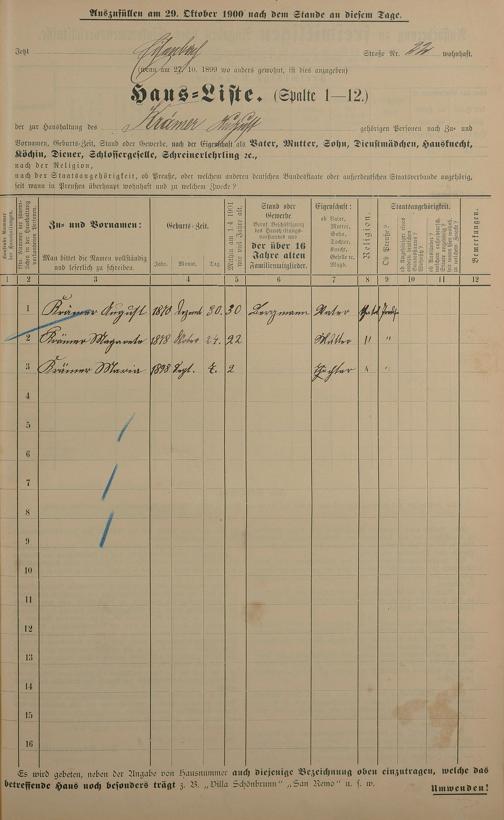 Auszufüllen am 29. Oktober 1900 nach dem Stande an diesem Tage.
Jetzt Straße Nr. 22 wohnhaft.
(wenn am 27. 10. 1899 wo anders gewohnt, ist dies anzugeben)
Haus-Liste. (Spalte 1—12.)
der zur Haushaltung des Krämer August gehörigen Personen nach Zu- und
Vornamen, Geburts-Zeit, Stand oder Gewerbe, nach der Eigenschaft als Vater, Mutter, Sohn, Dienstmädchen, Hausknecht,
Köchin, Diener, Schlossergeselle, Schreinerlehrling ꝛc.,
nach der Religion,
nach der Staatsangehörigkeit, ob Preuße, oder welchem anderen deutschen Bundesstaate oder außerdeutschen Staatsverbande angehörig,
seit wann in Preußen überhaupt wohnhaft und zu welchem Zwecke?
Zu- und Vornamen:
Man bittet die Namen vollständig
und leserlich zu schreiben.
Geburts-Zeit.
Jahr. Monat. Tag.
Mithin am 1/4 1901
wie viel Jahre alt.
Stand oder
Gewerbe
der über 16
Jahre alten
Familienmitglieder.
Eigenschaft:
ob Vater,
Mutter,
Sohn,
Tochter,
Knecht,
Geselle ꝛc.
Magd.
Religion.
Staatsangehörigkeit.
Ob Preuße?
Bemerkungen.
1 2 3 4 5 6 7 8 9 10 11 12
1 Krämer August 1870 30. 30 Bergmann Vater
2 Krämer Magarete 1878 24. 22 Mutter " "
3 Krämer Maria 1898 Sept. 4. 2 Tochter " "
4
5
6
7
8
9
10
11
12
13
14
15
16
Es wird gebeten, neben der Angabe von Hausnummer auch diejenige Bezeichnung oben einzutragen, welche das
betreffende Haus noch besonders trägt z. B. „Villa Schönbrunn" „San Remo" u. s. w.
Umwenden!